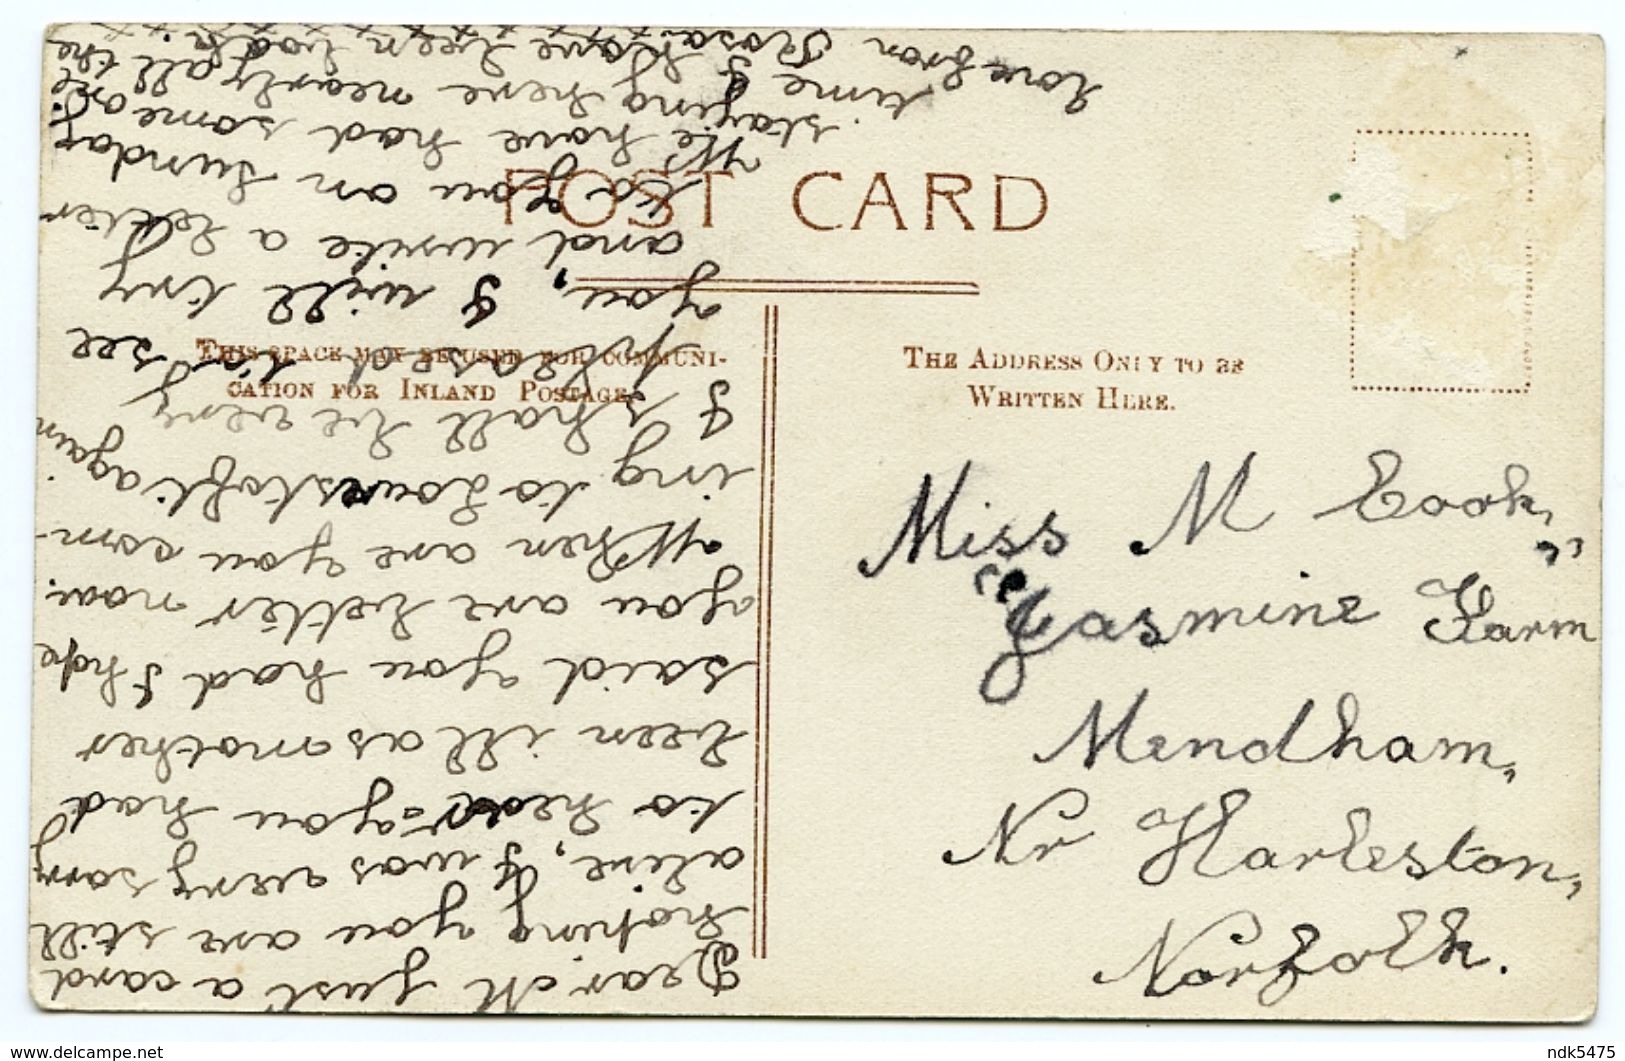 POST CARD
THIS SPACE MAY BE USED FOR COMMUNI-
CATION FOR INLAND POSTAGE.
THE ADDRESS ONLY TO BE
WRITTEN HERE.
Miss M Cook,
"Jasmine Farm"
Mendham,
Nr Harleston,
Norfolk.
Dear M just a card
hoping you are still
alive, I was very sorry
to hear you had
been ill as mother
said you had I hope
you are better now.
When are you com-
ing to Lowestoft again
I shall be very
pleased to see
you, I will try
and write a letter
to you on Sunday
We have had someone
staying here nearly all the
time I have been
Love from Rosa
ndk5475